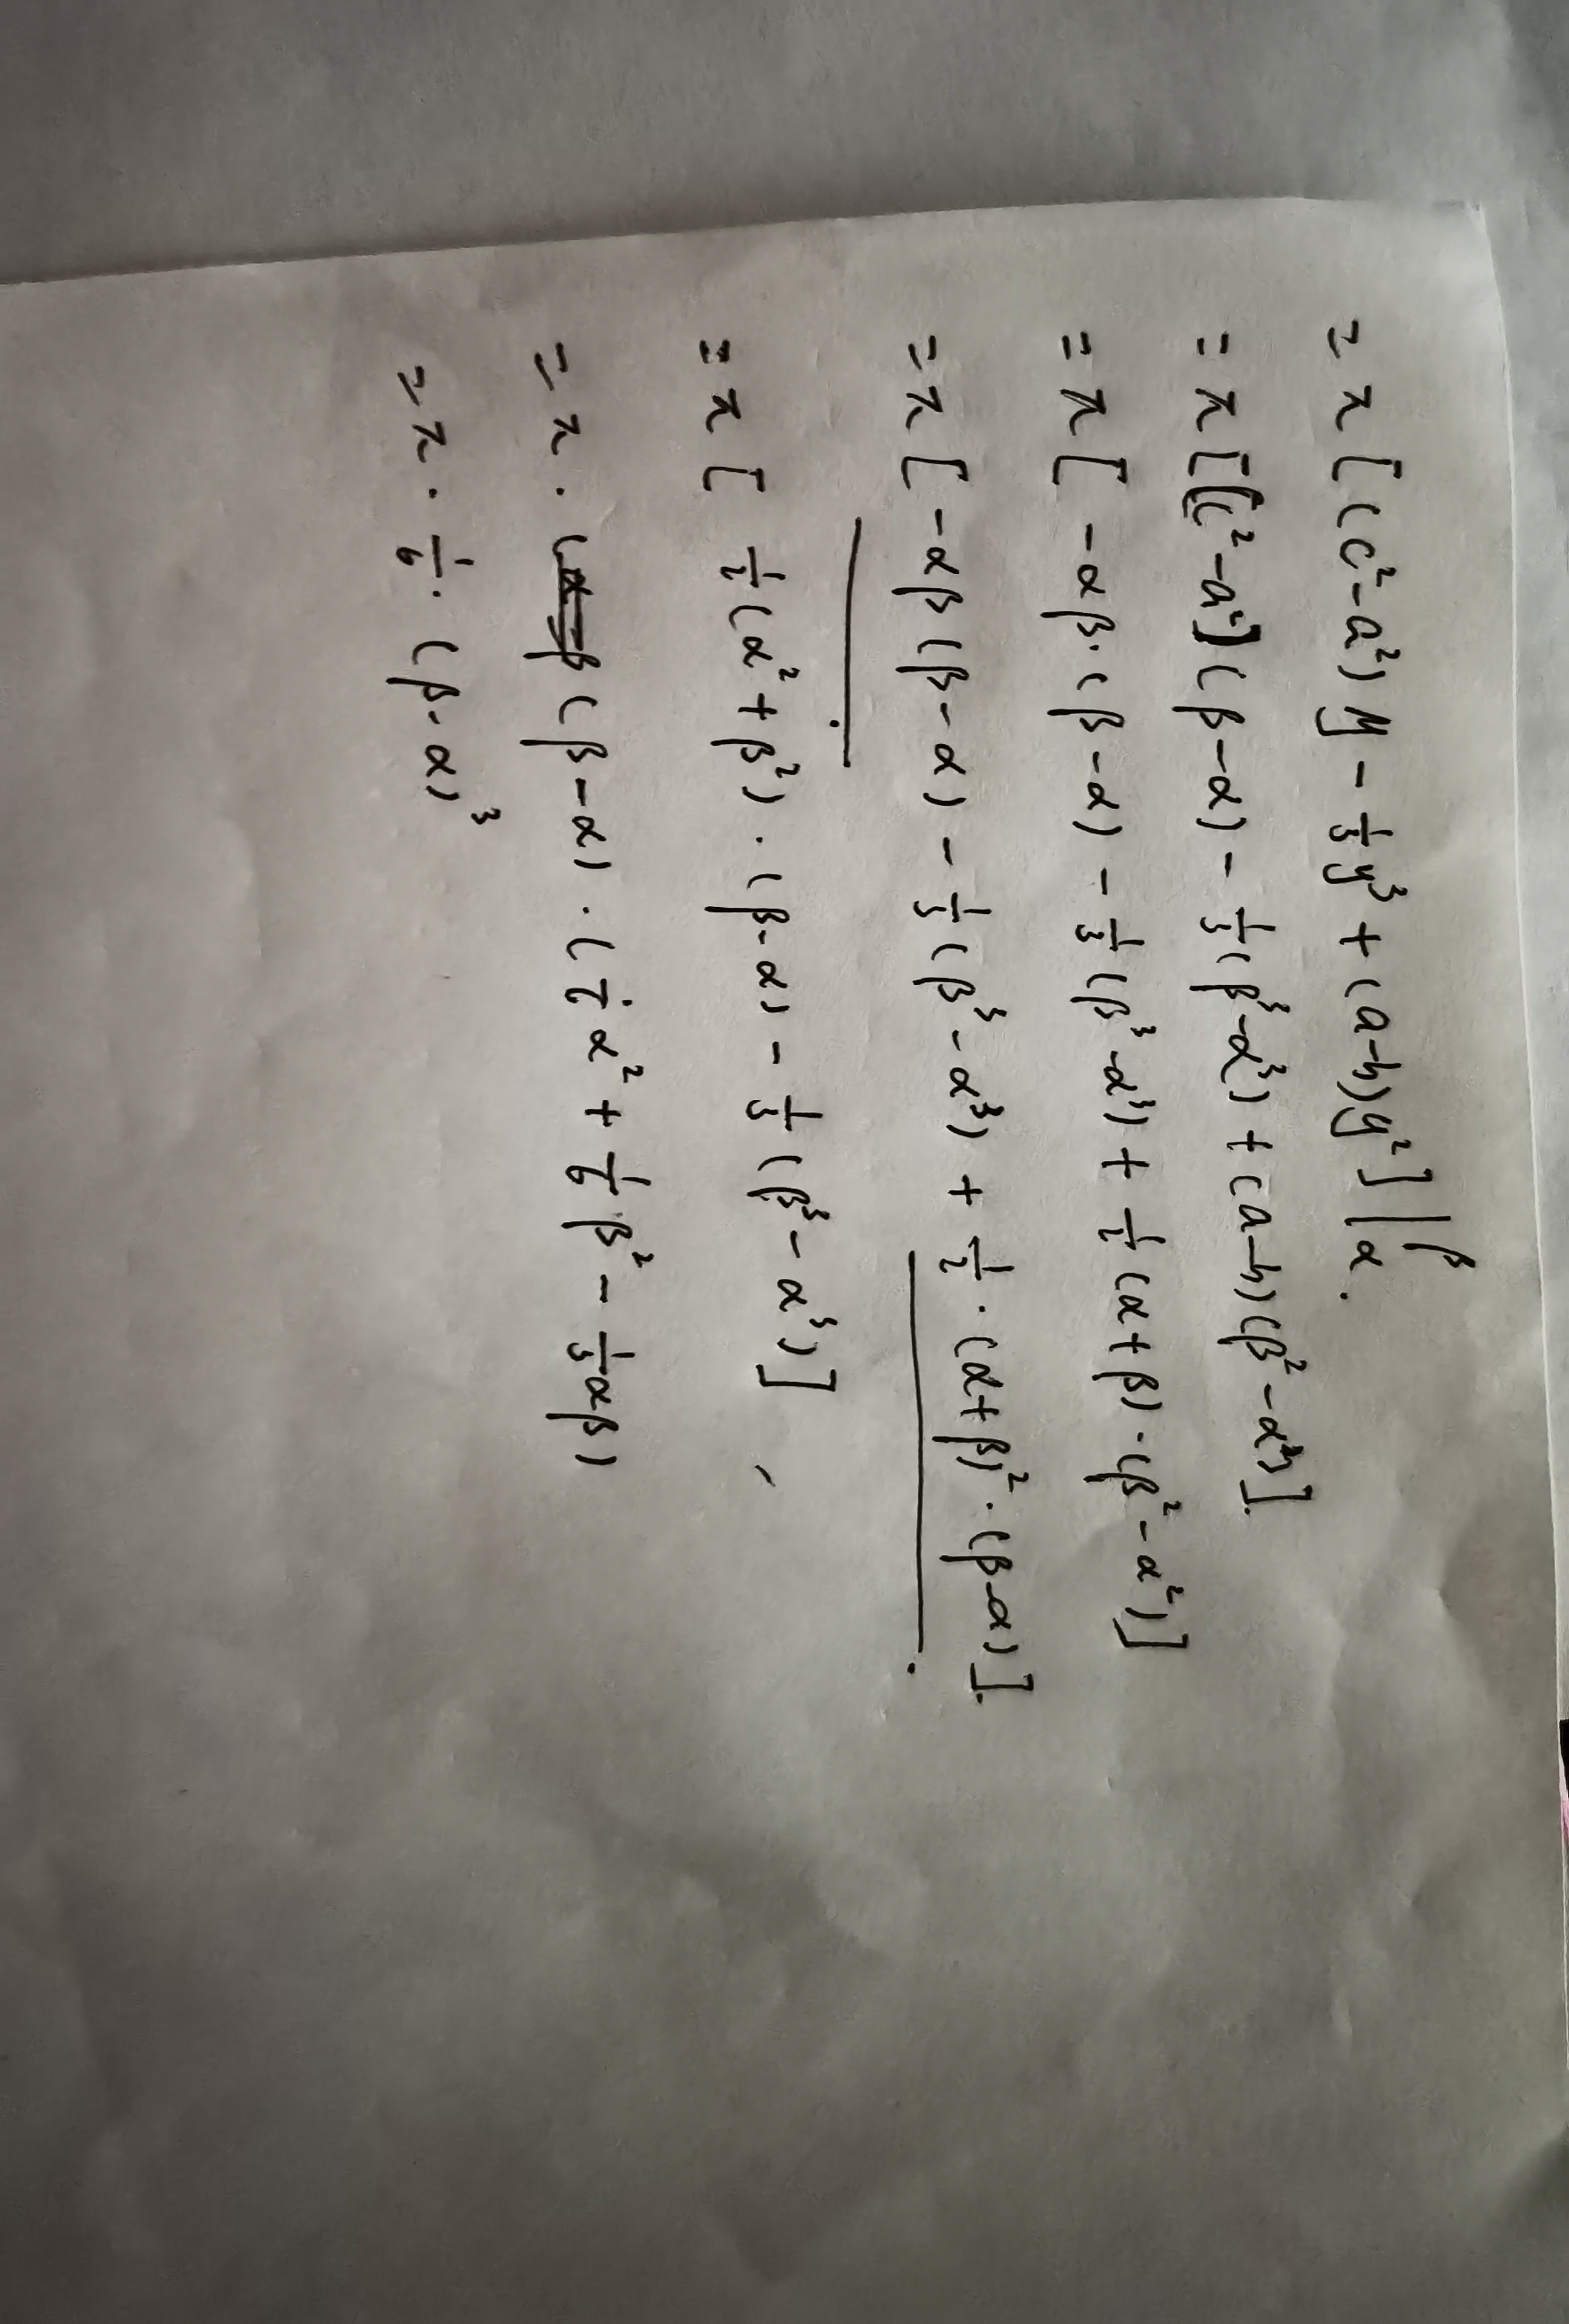 = π[(c²-a²)y - 1/3 y³ + (a-b)y²]|β α.
= π[(c²-a²)(β-α) - 1/3(β³-α³) + (a-b)(β²-α²)].
= π[-αβ·(β-α) - 1/3(β³-α³) + 1/2(α+β)·(β²-α²)]
= π[-αβ(β-α) - 1/3(β³-α³) + 1/2·(α+β)²·(β-α)].
= π[1/2(α²+β²)·(β-α) - 1/3(β³-α³)]
= π·(β-α)·(1/6α²+1/6β²-1/3αβ)
= π·1/6·(β-α)³